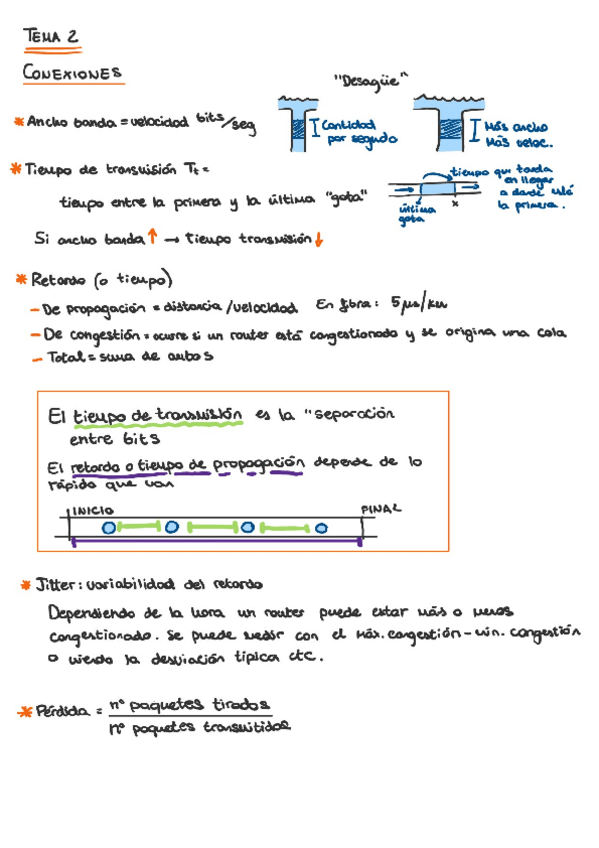 TEMA 2
CONEXIONES
"Desagüe"
* Ancho banda = velocidad bits/seg
Cantidad
por segundo
Más ancho
Más veloc.
* Tiempo de transmisión Tt =
tiempo entre la primera y la última "gota"
tiempo que tarda
en llegar
a donde está
la primera.
última
gota
x
Si ancho banda ↑ → tiempo transmisión ↓
* Retardo (o tiempo)
- De propagación = distancia/velocidad En fibra: 5 µs/km
- De congestión = ocurre si un router está congestionado y se origina una cola
- Total = suma de ambos
El tiempo de transmisión es la "separación
entre bits
El retardo o tiempo de propagación depende de lo
rápido que van
INICIO
FINAL
* Jitter: variabilidad del retardo
Dependiendo de la hora un router puede estar más o menos
congestionado. Se puede medir con el máx. congestión - min. congestión
o viendo la desviación típica etc.
* Pérdida = nº paquetes tirados
nº paquetes transmitidos